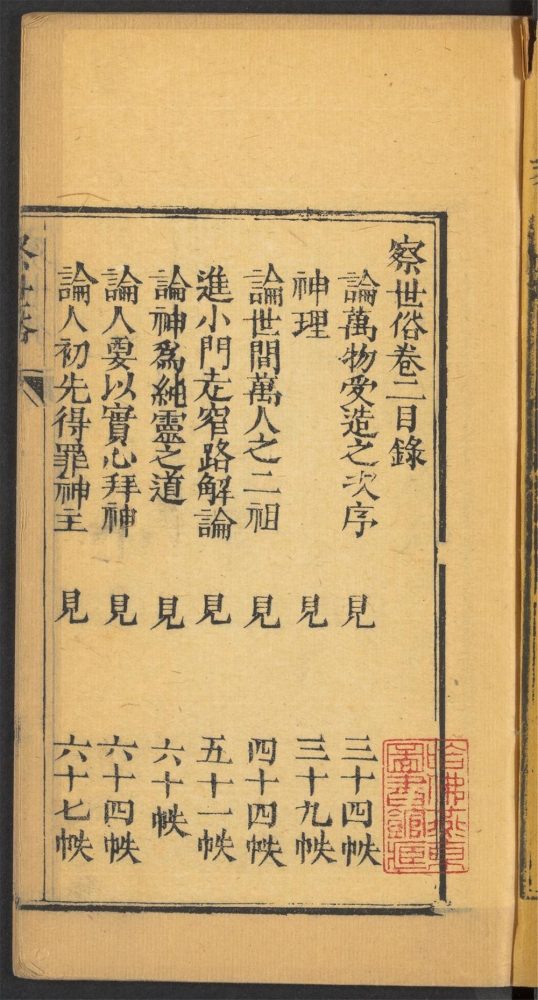 察世俗卷二目錄
論萬物受造之次序 見 三十四帙
神理 見 三十九帙
論世間萬人之二祖 見 四十四帙
進小門走窄路解論 見 五十一帙
論神爲純靈之道 見 六十帙
論人要以實心拜神 見 六十四帙
論人初先得罪神主 見 六十七帙
哈佛燕京
圖書館